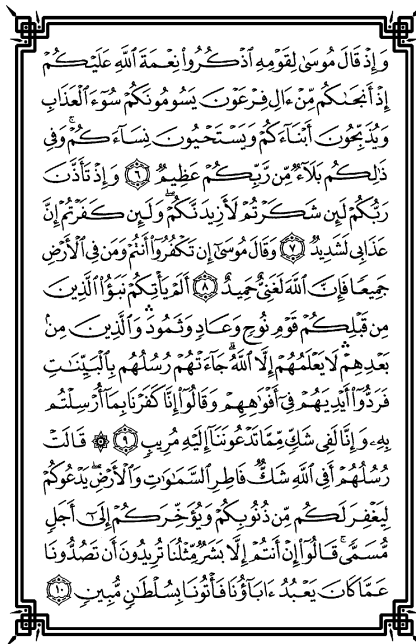 وَإِذۡ قَالَ مُوسَىٰ لِقَوۡمِهِ ٱذۡكُرُواْ نِعۡمَةَ ٱللَّهِ عَلَيۡكُمۡ
إِذۡ أَنجَىٰكُم مِّنۡ ءَالِ فِرۡعَوۡنَ يَسُومُونَكُمۡ سُوٓءَ ٱلۡعَذَابِ
وَيُذَبِّحُونَ أَبۡنَآءَكُمۡ وَيَسۡتَحۡيُونَ نِسَآءَكُمۡۚ وَفِي
ذَٰلِكُم بَلَآءٞ مِّن رَّبِّكُمۡ عَظِيمٞ ٦ وَإِذۡ تَأَذَّنَ
رَبُّكُمۡ لَئِن شَكَرۡتُمۡ لَأَزِيدَنَّكُمۡۖ وَلَئِن كَفَرۡتُمۡ إِنَّ
عَذَابِي لَشَدِيدٞ ٧ وَقَالَ مُوسَىٰٓ إِن تَكۡفُرُوٓاْ أَنتُمۡ وَمَن فِي ٱلۡأَرۡضِ
جَمِيعٗا فَإِنَّ ٱللَّهَ لَغَنِيٌّ حَمِيدٌ ٨ أَلَمۡ يَأۡتِكُمۡ نَبَؤُاْ ٱلَّذِينَ
مِن قَبۡلِكُمۡ قَوۡمِ نُوحٖ وَعَادٖ وَثَمُودَ وَٱلَّذِينَ مِنۢ
بَعۡدِهِمۡ لَا يَعۡلَمُهُمۡ إِلَّا ٱللَّهُۚ جَآءَتۡهُمۡ رُسُلُهُم بِٱلۡبَيِّنَٰتِ
فَرَدُّوٓاْ أَيۡدِيَهُمۡ فِيٓ أَفۡوَٰهِهِمۡ وَقَالُوٓاْ إِنَّا كَفَرۡنَا بِمَآ أُرۡسِلۡتُم
بِهِۦ وَإِنَّا لَفِي شَكّٖ مِّمَّا تَدۡعُونَنَآ إِلَيۡهِ مُرِيبٖ ٩ ۞ قَالَتۡ
رُسُلُهُمۡ أَفِي ٱللَّهِ شَكّٞ فَاطِرِ ٱلسَّمَٰوَٰتِ وَٱلۡأَرۡضِۖ يَدۡعُوكُمۡ
لِيَغۡفِرَ لَكُم مِّن ذُنُوبِكُمۡ وَيُؤَخِّرَكُمۡ إِلَىٰٓ أَجَلٖ
مُّسَمّٗىۚ قَالُوٓاْ إِنۡ أَنتُمۡ إِلَّا بَشَرٞ مِّثۡلُنَا تُرِيدُونَ أَن تَصُدُّونَا
عَمَّا كَانَ يَعۡبُدُ ءَابَآؤُنَا فَأۡتُونَا بِسُلۡطَٰنٖ مُّبِينٖ ١٠